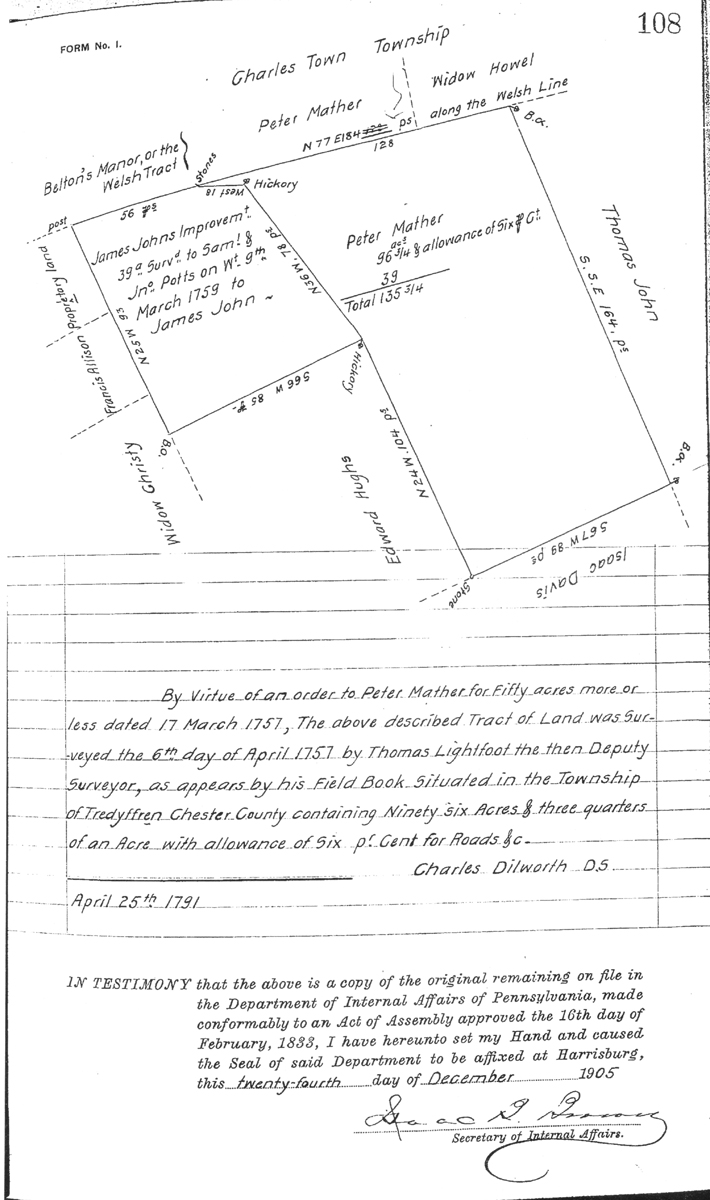 108
FORM No. 1.
Charles Town Township
Peter Mather
Widow Howel
along the Welsh Line
N 77 E 184 ps
128
B.o.
Belton's Manor, or the
Welsh Tract
Stones
West 18
Hickory
post
56 ps
James Johns Improvemt.
39a Survd. to Saml. &
Jno. Potts on Wt. 9th
March 1759 to
James John ~
N36W. 78 ps
Peter Mather
acs
96 3/4 & allowance of Six p Ct.
39
Total 135 3/4
Thomas John
S.S.E 164. ps
Francis Allison Proprietary land
N25W 93
S66 W 85 ps
Hickory
B.o.
Widow Christy
Edward Hughs
N24W. 104 ps
B.o.
S67W 89 ps
Isaac Davis
Stone
By Virtue of an order to Peter Mather for Fifty acres more or
less dated 17 March 1757, The above described Tract of Land was Sur-
-veyed the 6th day of April 1757 by Thomas Lightfoot the then Deputy
Surveyor, as appears by his Field Book Situated in the Township
of Tredyffren Chester County containing Ninety six Acres & three quarters
of an Acre with allowance of Six pr. Cent for Roads &c.
Charles Dilworth D.S.
April 25th 1791
IN TESTIMONY that the above is a copy of the original remaining on file in
the Department of Internal Affairs of Pennsylvania, made
conformably to an Act of Assembly approved the 16th day of
February, 1833, I have hereunto set my Hand and caused
the Seal of said Department to be affixed at Harrisburg,
this twenty-fourth day of December 1905
Isaac B. Brown
Secretary of Internal Affairs.